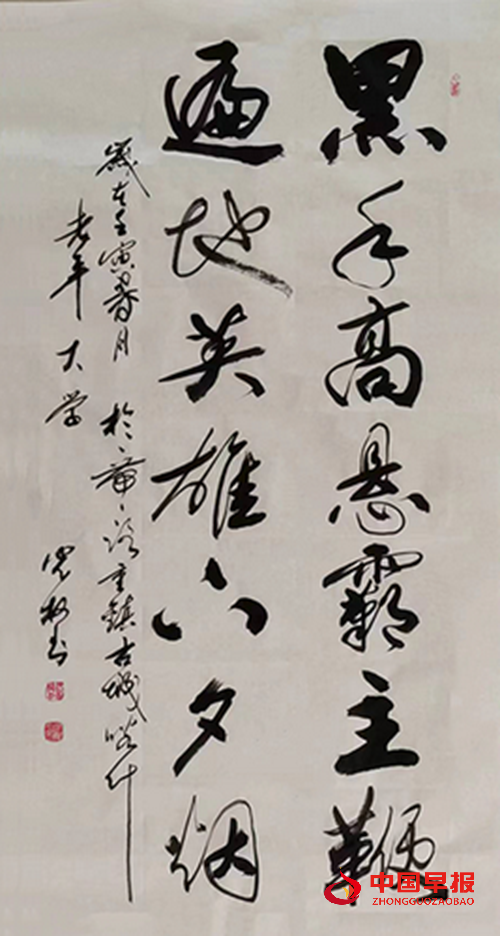 黑手高悬霸主鞭
遍地英雄下夕烟
歲在壬寅月 於重鎮古城喀什
老年大学
书
中国早报
ZHONGGUOZAOBAO